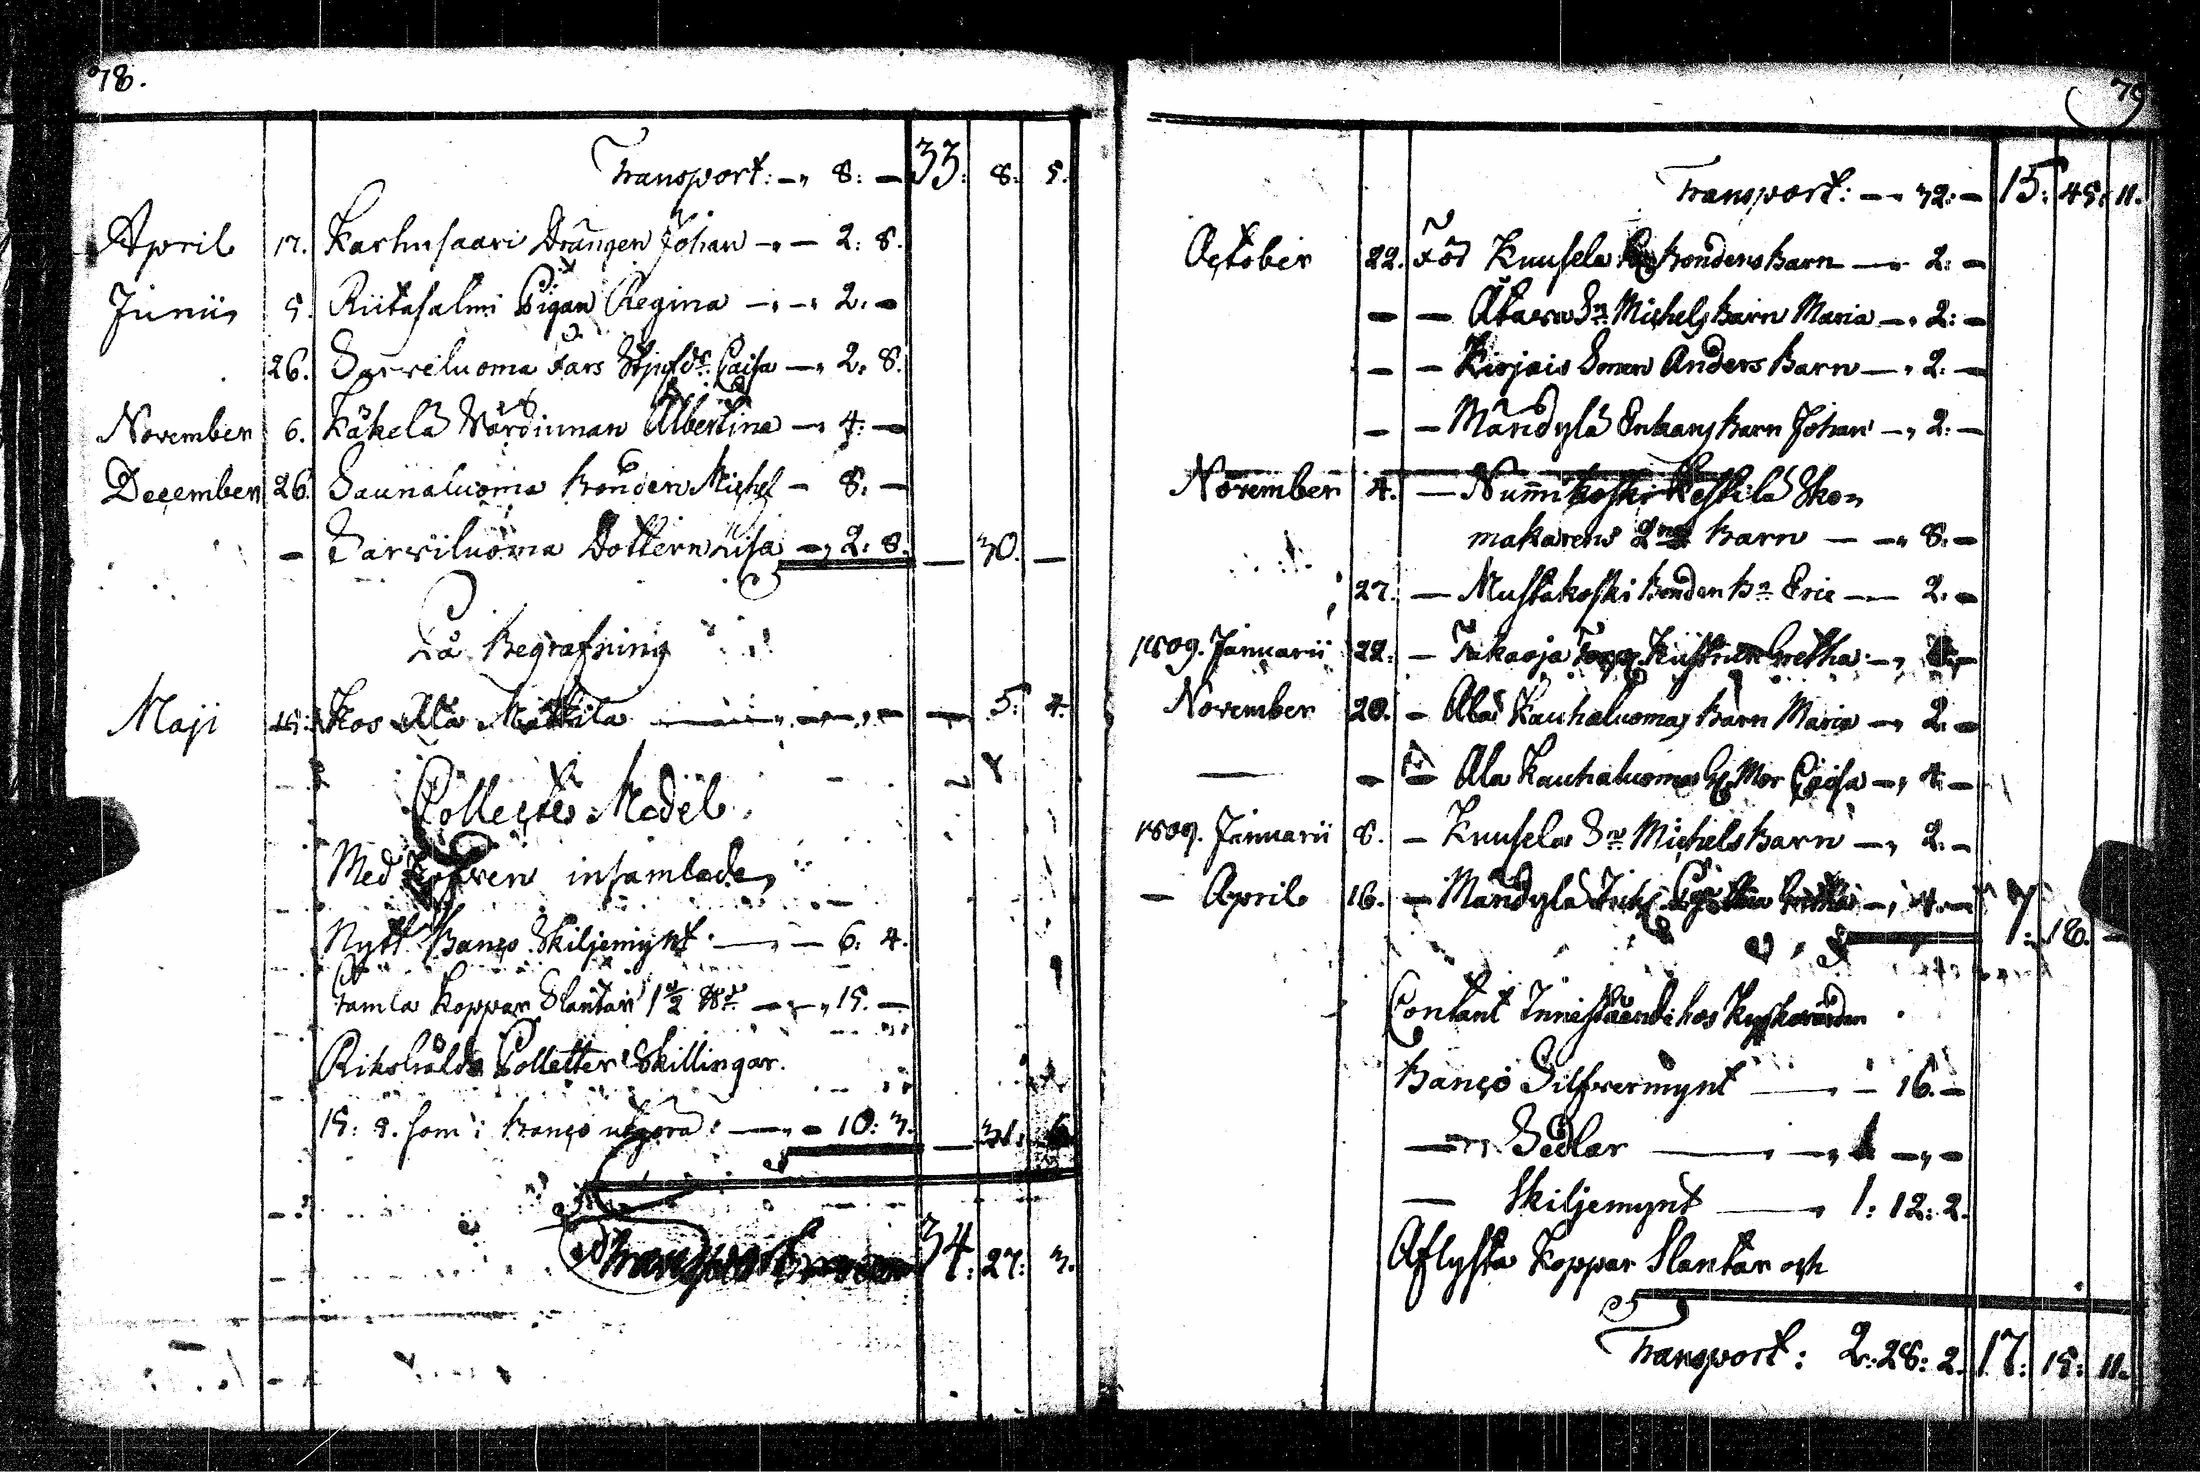 78.
Transport: — „ 8: — 33: 8: 5.
April 17. Karhusaari Drängen Johan — „ — 2: 8.
Junii 5. Riitasalmi Pigan Regina — „ — „ 2: —
26. Sarviluoma Fars Styfdr. Caisa — „ 2: 8.
November 6. Käkelä Värdinnan Albertina — „ 4: —
December 26. Saunaluoma Bonden Michel — 8: —
— Sarviluoma Dottern Lisa — „ 2: 8. — 30. —
På Begrafning
Maji 15: Hos Ala Mattila — 5: 4.
Collecte Medel.
Med Håfven insamlade,
Nytt Banco Skiljemynt — „ — 6: 4.
Gamla Koppar Slantar 1 1/2 — „ 15. —
Riksgälds Polletter Skillingar.
15: 5. som i Banco utgöra: — „ — 10: 3. — 31: 6.
Transport 34: 27: 3.
79
Transport: — „ 32: — 15: 45: 11.
October 22. För Knusela Bondens Barn — „ 2: —
— — Sn. Michels Barn Maria — „ 2: —
— — Anders Barn — „ 2: —
— — Mändylä Enkans Barn Johan — „ 2: —
November 4. — Nummikoski Keskilä Sko„
makarens 2ne Barn — — „ 8: —
27. — Mustakoski Bonden Bn. Eric — — 2: —
1809. Januarii 22. — Takaoja Gretha — „
November 20. — Ala Kauhaluomas Barn Maria — „ 2: —
— — — Ala Kauhaluomas Mor Caisa — „ 4: —
1809. Januarii 8. — Knusela Sn. Michels Barn — „ 2: —
— April 16. — Mändylä — „ 4: — 7: 18. —
Contant Innestående hos Kyrkovärden
Banco Silfvermynt — „ — 16. —
— „ Sedlar — „ — „ 1 — „ —
— Skiljemynt — „ 1: 12: 2.
Aflysta Koppar Slantar och
Transport: 2: 28: 2. 17: 15: 11.